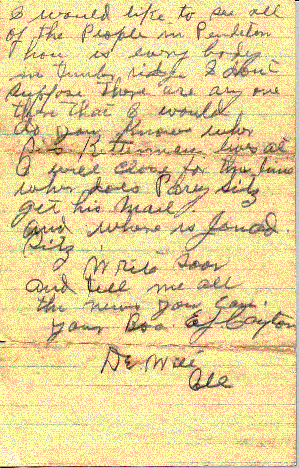 I would like to see all
of the People in Pendleton
How is every body
in ridge I dont
suppose there are any one
there that I would
do you know wher
lives at
I will close for this time
wher does Percy Sitz
get his Mail.
and where is
Sitz
Write Soon
and tell me all
the news you can.
your Bro. E J Cayton
De Witt